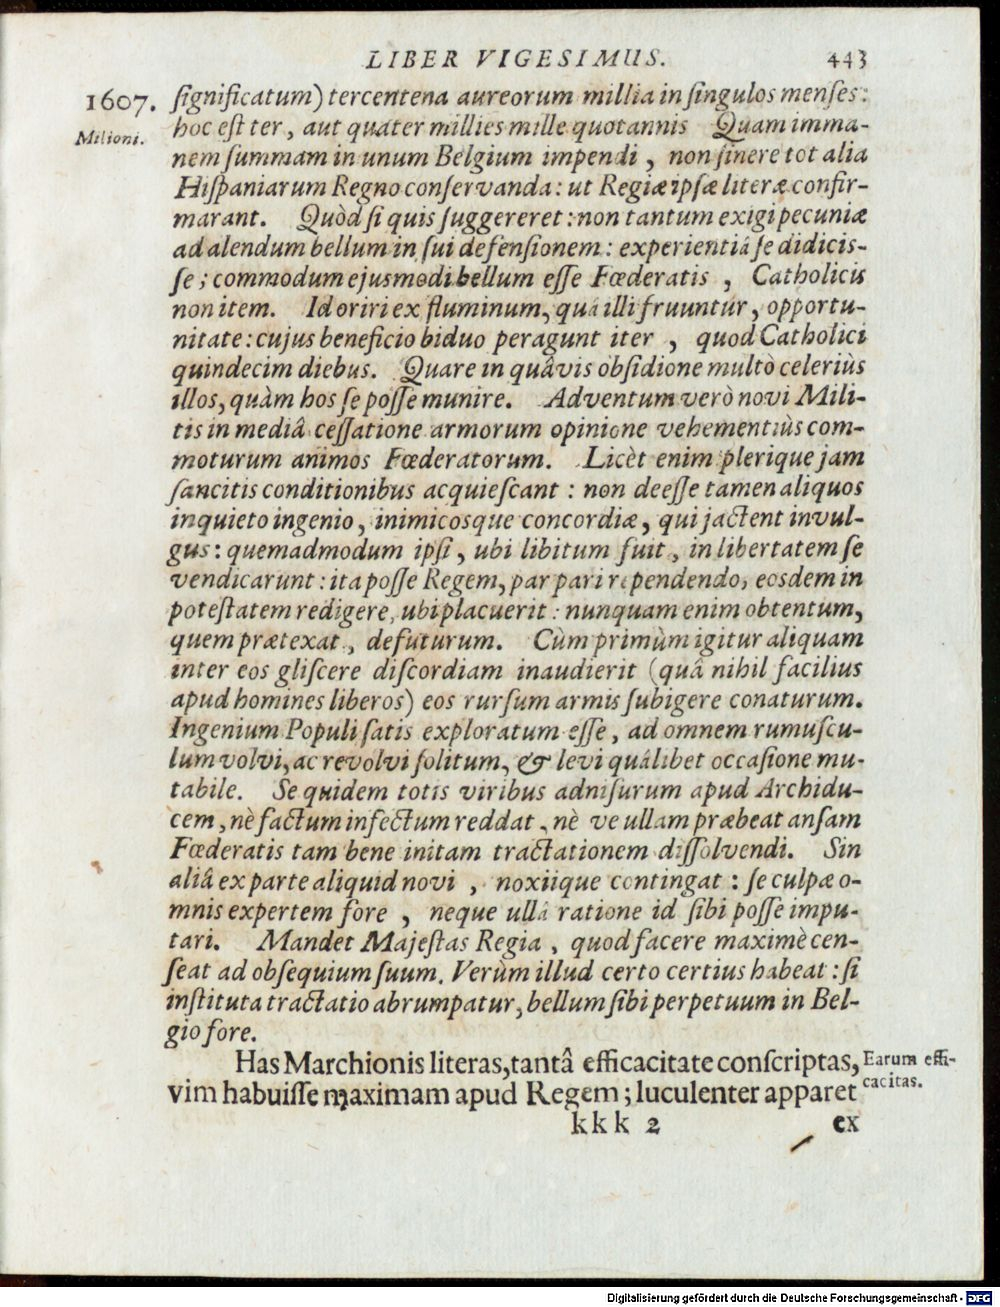 LIBER VIGESIMUS. 443
1607. ſignificatum) tercentena aureorum millia in ſingulos menſes:
Milioni. hoc eſt ter, aut quater millies mille quotannis Quam imma-
nem ſummam in unum Belgium impendi, non ſinere tot alia
Hiſpaniarum Regno conſervanda: ut Regiæ ipſæ literæ confir-
marant. Quòd ſi quis ſuggereret: non tantum exigi pecuniæ
ad alendum bellum in ſui defenſionem: experientiâ ſe didiciſ-
ſe; commodum ejusmodi bellum eſſe Fœderatis, Catholicis
non item. Id oriri ex fluminum, quâ illi fruuntur, opportu-
nitate: cujus beneficio biduo peragunt iter, quod Catholici
quindecim diebus. Quare in quâvis obſidione multò celeriùs
illos, quàm hos ſe poſſe munire. Adventum verò novi Mili-
tis in mediâ ceſſatione armorum opinione vehementiùs com-
moturum animos Fœderatorum. Licèt enim plerique jam
ſancitis conditionibus acquieſcant: non deeſſe tamen aliquos
inquieto ingenio, inimicosque concordiæ, qui jactent in vul-
gus: quemadmodum ipſi, ubi libitum fuit, in libertatem ſe
vendicarunt: ita poſſe Regem, par pari rependendo, eosdem in
poteſtatem redigere, ubi placuerit: nunquam enim obtentum,
quem prætexat, defuturum. Cùm primùm igitur aliquam
inter eos gliſcere diſcordiam inaudierit (quâ nihil facilius
apud homines liberos) eos rurſum armis ſubigere conaturum.
Ingenium Populi ſatis exploratum eſſe, ad omnem rumuſcu-
lum volvi, ac revolvi ſolitum, & levi quâlibet occaſione mu-
tabile. Se quidem totis viribus adniſurum apud Archidu-
cem, nè factum infectum reddat, nè ve ullam præbeat anſam
Fœderatis tam bene initam tractationem diſſolvendi. Sin
aliâ ex parte aliquid novi, noxiique contingat: ſe culpæ o-
mnis expertem fore, neque ullâ ratione id ſibi poſſe impu-
tari. Mandet Majeſtas Regia, quod facere maximè cen-
ſeat ad obſequium ſuum. Verùm illud certo certius habeat: ſi
inſtituta tractatio abrumpatur, bellum ſibi perpetuum in Bel-
gio fore.
Has Marchionis literas, tantâ efficacitate conſcriptas, Earum effi-
vim habuiſſe maximam apud Regem; luculenter apparet cacitas.
kkk 2 ex
Digitalisierung gefördert durch die Deutsche Forschungsgemeinschaft - DFG